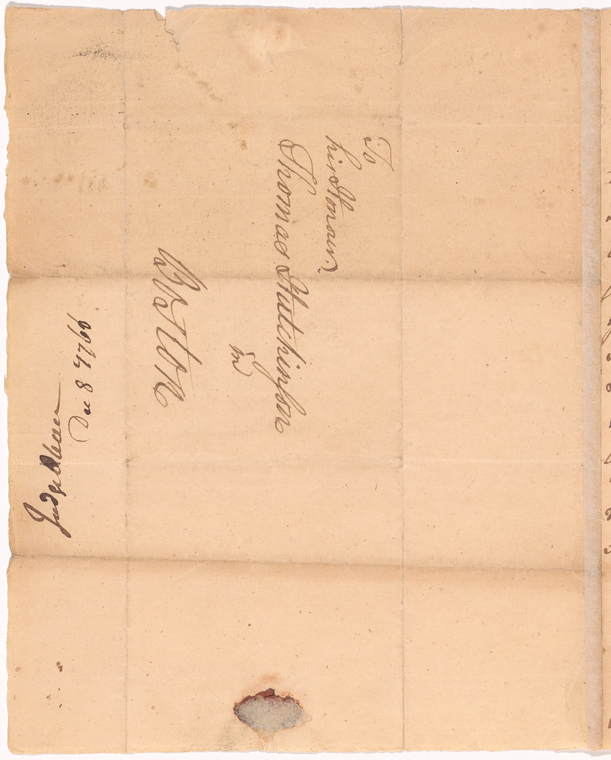 To
his Honour
Thomas Hutchinson
in
Boston
Judge
Dec 8 1766